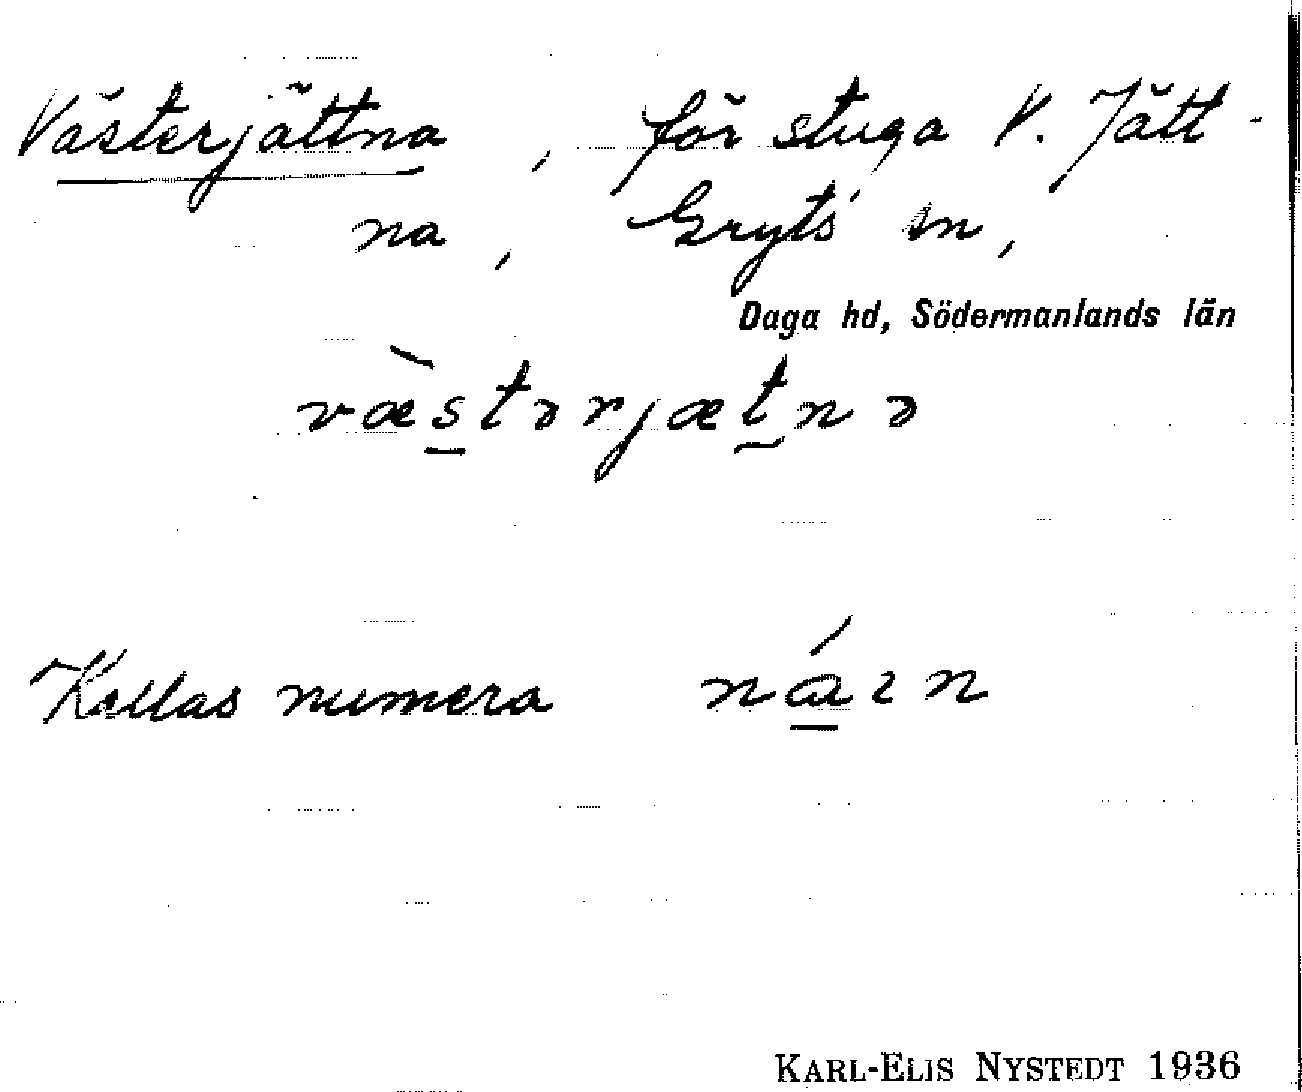 Västerjättna, för stuga V. Jätt-
na, Gryts sn,
Daga hd, Södermanlands län
væ̀s̲tərjæt̲nə
Kallas numera ná̲ın
KARL-ELIS NYSTEDT 1936